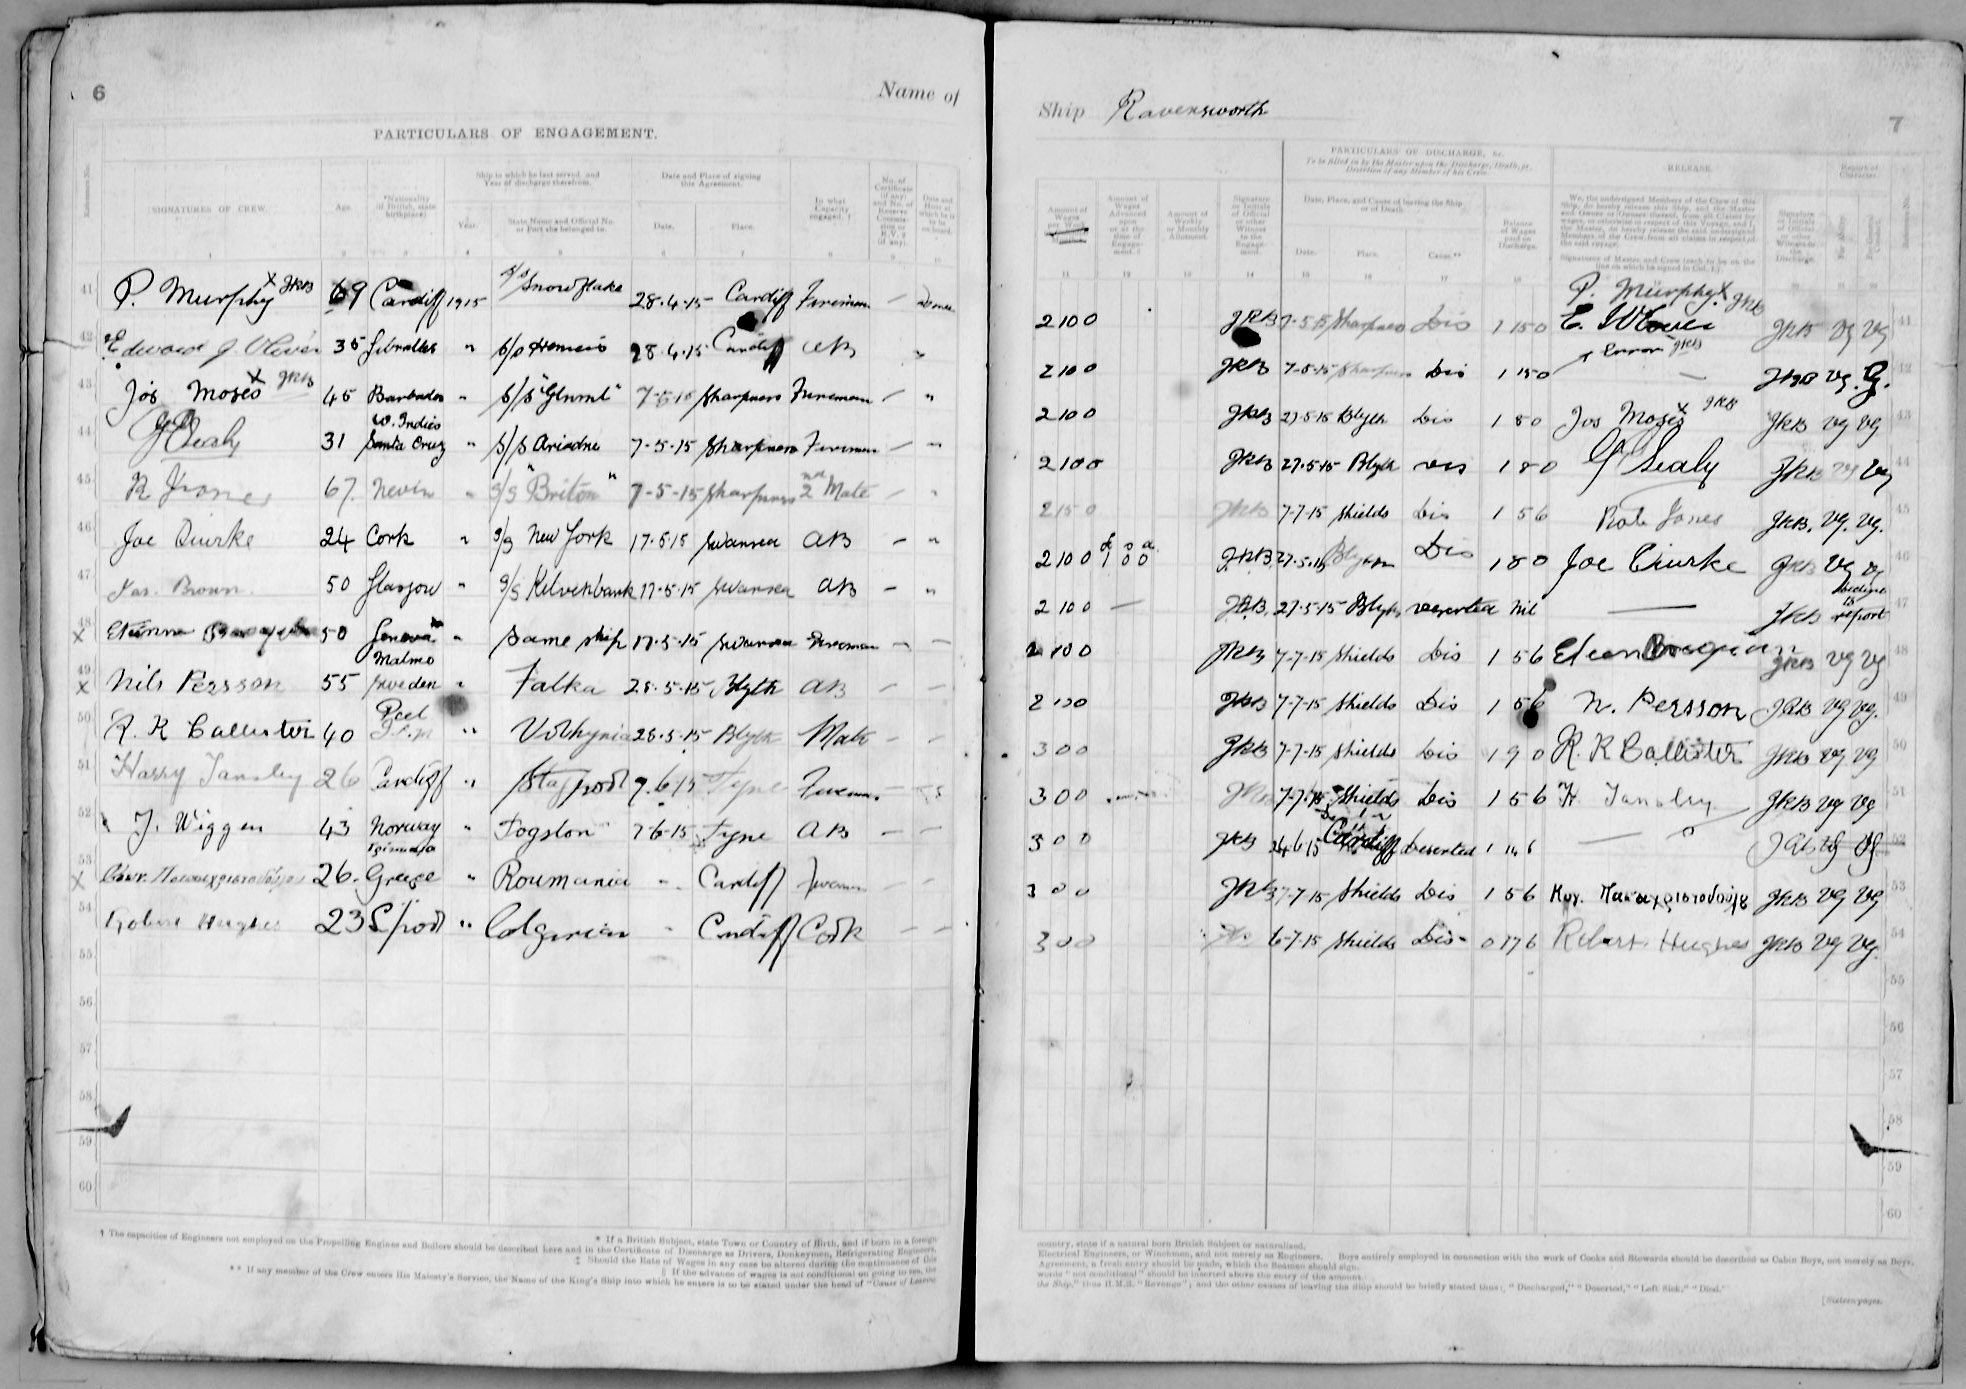 6
Name of
PARTICULARS OF ENGAGEMENT.
Reference No.
SIGNATURES OF CREW.
Age.
*Nationality (if British, state birthplace)
Ship in which he last served, and Year of discharge therefrom.
Year.
State Name and Official No. or Port she belonged to.
Date and Place of signing this Agreement.
Date.
Place.
In what Capacity engaged. †
41 P. Murphy X JRB 69 Cardiff 1915 s/s Snowflake 28.4.15 Cardiff Fireman —
42 Edward J Oliver 35 Gibralter " s/s 28.4.15 Cardiff AB "
43 Jos Moses X JRB 45 Barbados " s/s 7-5-15 Sharpness Fireman — "
W. Indies
44 G Sealy 31 Santa Cruz " s/s Ariadne 7-5-15 Sharpness Fireman — "
45 R Jones 67 Nevin " s/s "Briton" 7-5-15 Sharpness 2nd Mate — "
46 Joe Quirke 24 Cork " s/s New York 17.5.15 Swansea AB — "
47 Jas. Brown. 50 Glasgow " s/s Kelvinbank 17.5.15 Swansea AB — "
48 X Etienne 50 Genova " Same ship 17.5.15 Swansea Fireman — —
Malmo
49 X Nils Persson 55 Sweden " Falka 28.5.15 Blyth AB — —
Peel
50 R. K Callister 40 I.o.m " Volhynia 28.5.15 Blyth Mate — —
51 Harry Tansley 26 Cardiff " 7.6.15 Tyne Fireman —
52 J. Wiggen 43 Norway " Fogston 7.6.15 Tyne AB — —
53 X 26 Greece " Roumania " Cardiff Fireman — —
54 Robert Hughes 23 L/pool " Calgarian " Cardiff Cook — —
55
56
57
58
59
60
† The capacities of Engineers not employed on the Propelling Engines and Boilers should be described here and in the Certificate of Discharge as Drivers, Donkeymen, Refrigerating Engineers,
* If a British Subject, state Town or Country of Birth, and if born in a foreign
‡ Should the Rate of Wages in any case be altered during the continuance of this
§ If the advance of wages is not conditional on going to sea, the
** If any member of the Crew enters His Majesty's Service, the Name of the King's Ship into which he enters is to be stated under the head of "Cause of Leaving
Ship Ravensworth
7
PARTICULARS OF DISCHARGE, &c.
To be filled in by the Master upon the Discharge, Death, or Desertion of any Member of his Crew.
RELEASE.
Report of Character.
Amount of Wages per Week
Amount of Wages Advanced upon or at the time of Engagement.
Amount of Weekly or Monthly Allotment.
Signature or Initials of Official or other Witness to the Engagement.
Date, Place, and Cause of leaving the Ship or of Death.
Date.
Place.
Cause.**
Balance of Wages paid on Discharge.
P. Murphy X JRB
2 10 0 JRB 7-5-15 Sharpness Dis 1 15 0 E. Oliver JRB VG VG 41
Error JRB
2 10 0 JRB 7-5-15 Sharpness Dis 1 15 0 — JRB VG. G. 42
2 10 0 JRB 27-5-15 Blyth Dis 1 8 0 Jos Moses X JRB JRB VG VG 43
2 10 0 JRB 27.5.15 Blyth Dis 1 8 0 G Sealy JRB VG VG 44
2 15 0 JRB 7-7-15 Shields Dis 1 5 6 Robt Jones JRB. VG. VG. 45
2 10 0 1 0 0 JRB 27.5.15 Blyth Dis 1 8 0 Joe Quirke JRB VG VG 46
2 10 0 — JRB. 27.5.15 Blyth Deserted Nil — JRB Decline to report 47
2 10 0 JRB 7-7-15 Shields Dis 1 5 6 JRB VG VG 48
2 10 0 JRB 7-7-15 Shields Dis 1 5 6 N. Persson JRB VG VG. 49
3 0 0 JRB 7-7-15 Shields Dis 1 9 0 R. K Callister JRB VG VG 50
3 0 0 JRB 7-7-15 Shields Dis 1 5 6 H Tansley JRB VG VG 51
3 0 0 JRB 24.6.15 Cardiff Deserted — JRB VG VG 52
3 0 0 JRB 7-7-15 Shields Dis 1 5 6 Παπαχριστοδούλου JRB VG VG 53
3 0 0 6-7-15 Shields Dis 0 17 6 Robert Hughes JRB VG VG. 54
55
56
57
58
59
60
country, state if a natural born British Subject or naturalised.
Electrical Engineers, or Winchmen, and not merely as Engineers. Boys entirely employed in connection with the work of Cooks and Stewards should be described as Cabin Boys, not merely as Boys.
Agreement, a fresh entry should be made, which the Seaman should sign.
words "not conditional" should be inserted above the entry of the amount.
the Ship," thus H.M.S. "Revenge"; and the other causes of leaving the Ship should be briefly stated thus: "Discharged," "Deserted," "Left Sick," "Died."
[Sixteen pages.